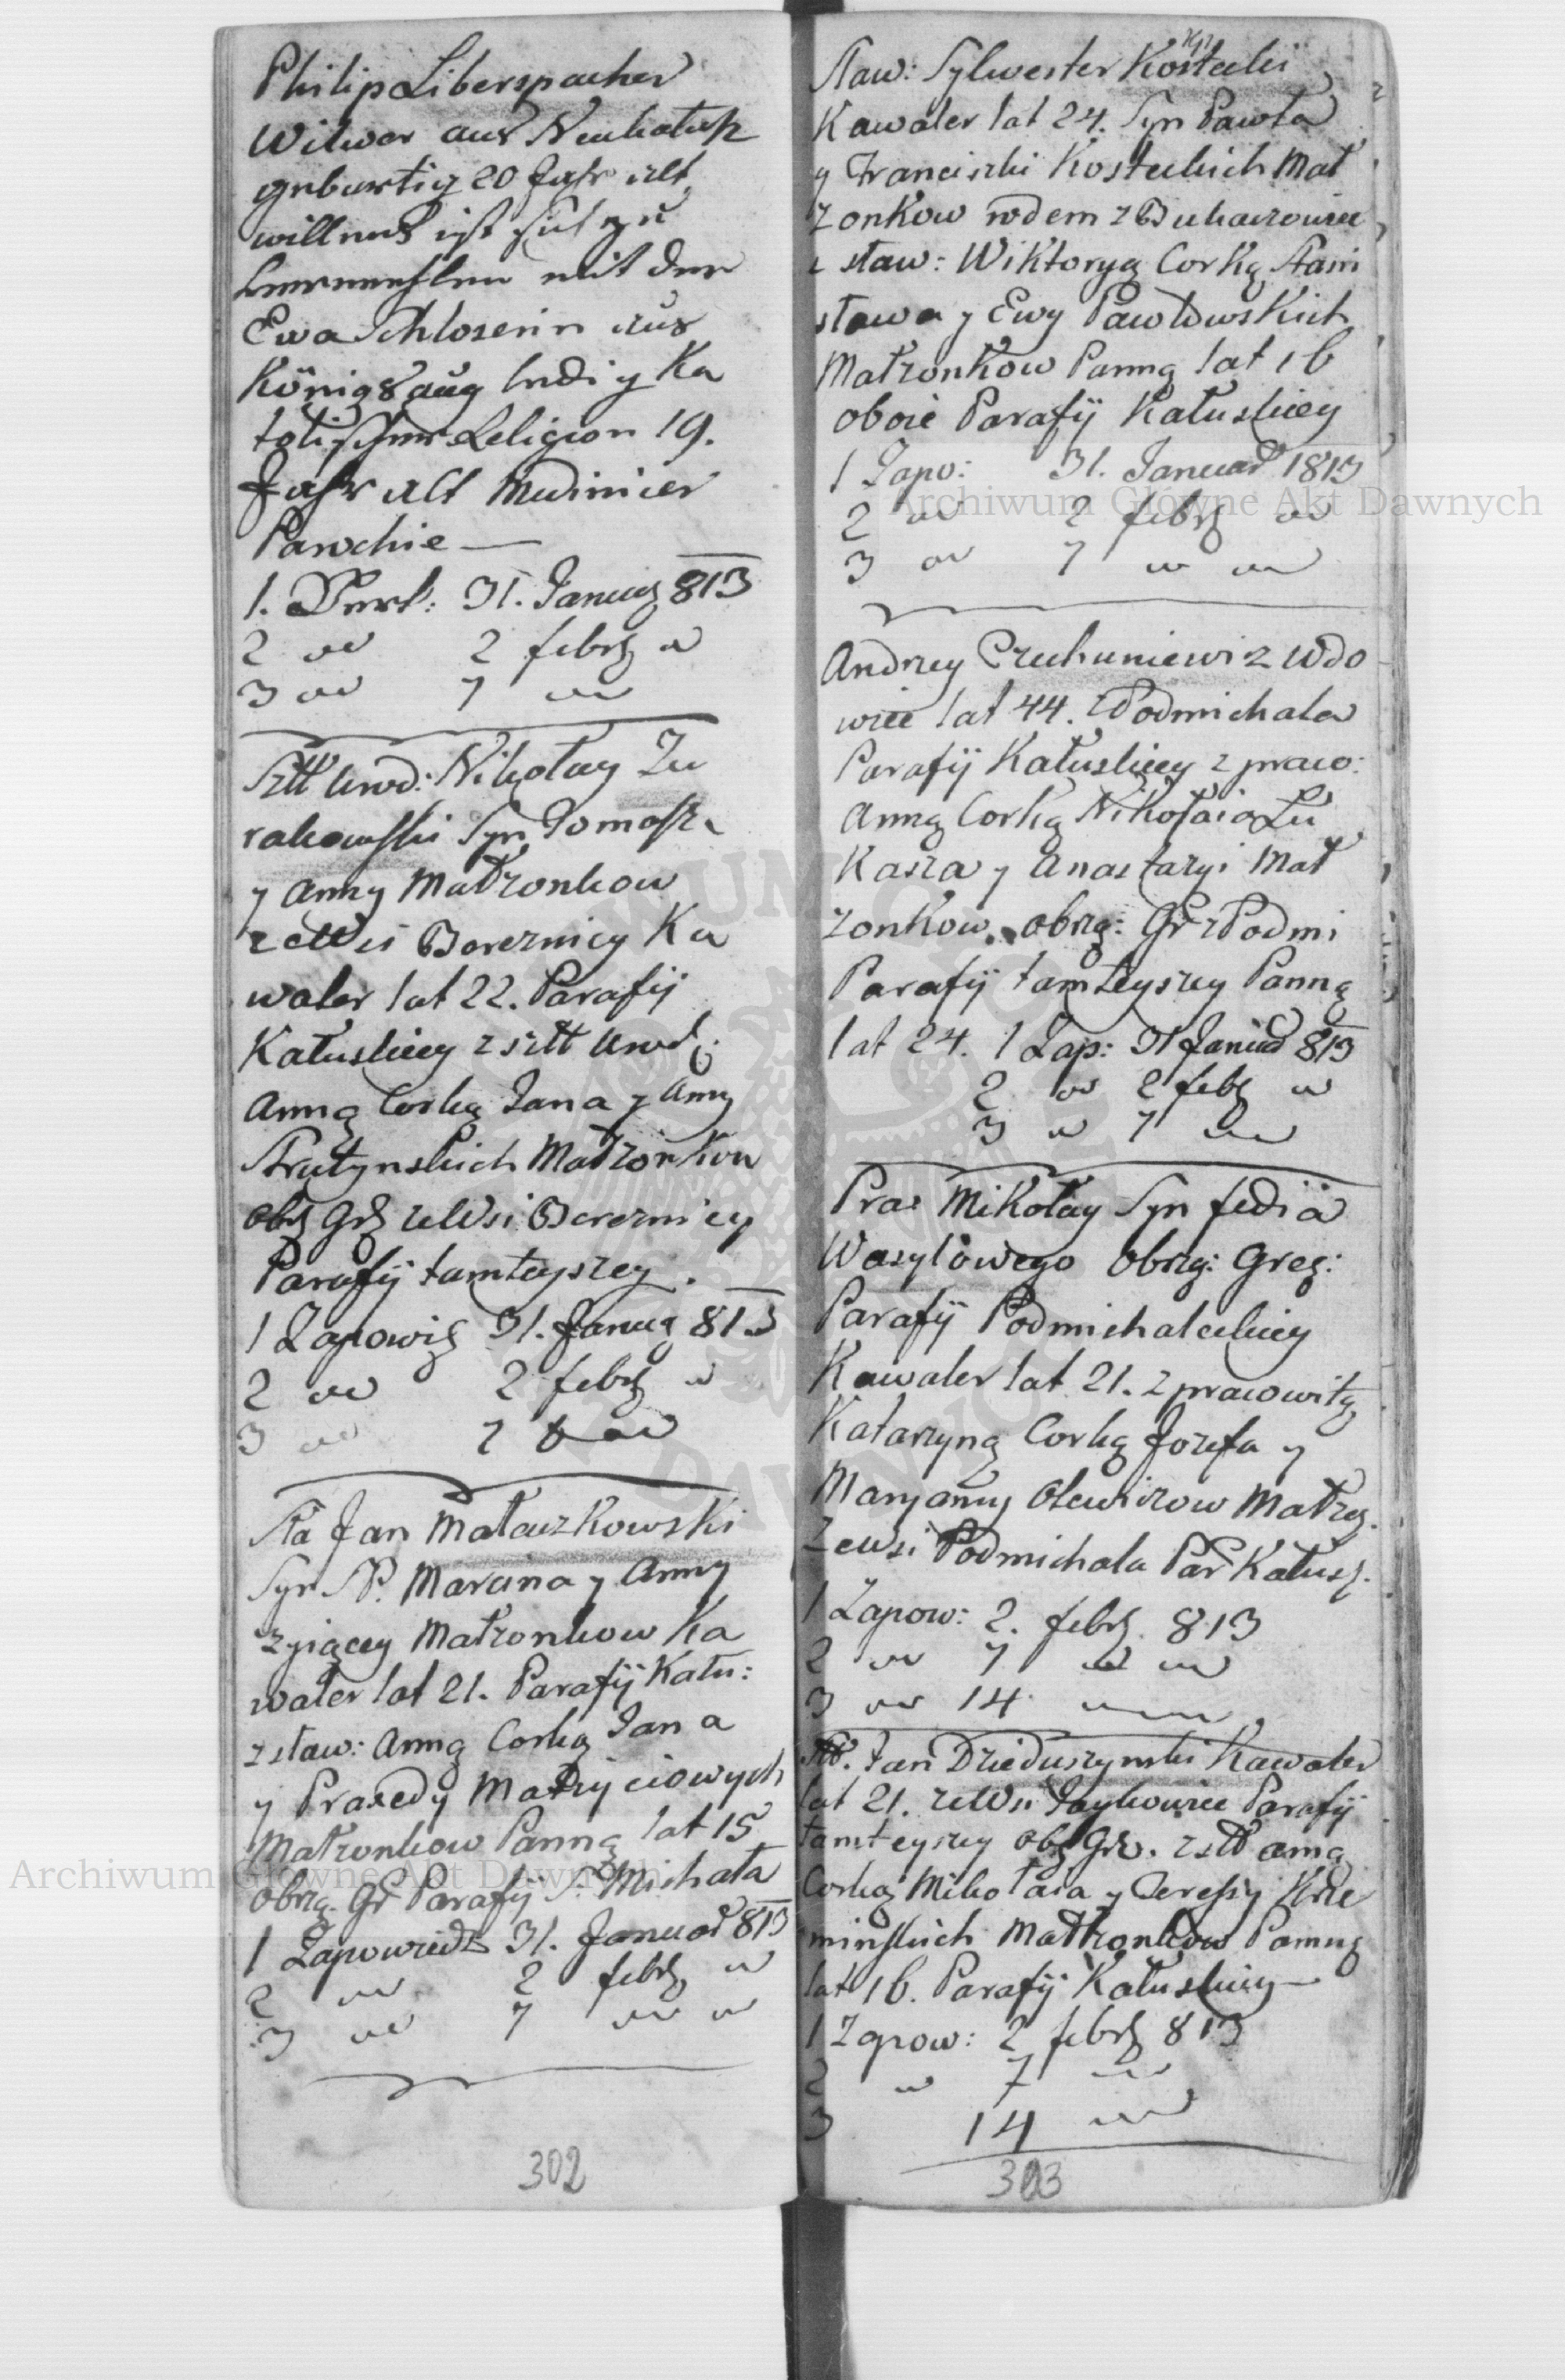 Philip Liberspacher
Witwer aus Neukalusz
geburtig 20 Jahr alt
willens ist sich zu
mit der
Ewa Schloserin aus
Königsau ledig Ka
tolischer Religion 19.
Jahr alt Medinicer
Parochie —
1. Verk: 31. Januar 813
2 " 2 febr "
3 " 7 "
Szltt Urod: Nikołay Zu
rakowski Syn Tomasza
y Anny Małzonkow
ze Wsi Bereznicy Ka
waler lat 22. Parafij
Kałuskiey z szltt Urod:
Anną Corką Jana y Anny
Strutynskich Małzonkow
obrz Grz ze Wsi Bereznicy
Parafij tamteyszey.
1 Zapowiedz 31. Januar 813
2 " 2 febr "
3 " 7 "
Sła Jan Małaczkowski
Syn SP. Marcina y Anny
zyiącey Małzonkow Ka
waler lat 21. Parafij Kału:
z sław: Anną Corką Jana
y Praxedy Matyiciowych
Małzonkow Panną lat 15
obrzą. Gr Parafij S. Michała
1 Zapowiedz 31. Januar 813
2 " 2 febr "
3 " 7 " "
302
Sław: Sylwester Kostecki
Kawaler lat 24. Syn Pawła
y Franciszki Kosteckich Mał
zonkow rodem z Bukaczowiec
z sław: Wiktoryą Corką Stani
sława y Ewy Pawłowskich
Małzonkow Panną lat 16
oboie Parafij Kałuskiey
1 Zapo: 31. Januar 1813
2 " 2 febr "
3 " 7 " "
Andrzey Czechuniewicz Wdo
wiec lat 44. z Podmichala
Parafij Kałuskiey z praco:
Anną Corką Nikołaia Łu
kasza y Anastazyi Mał
zonkow obrzą: Gr z Podmi
Parafij tamteyszey Panną
lat 24. 1 Zap: 31 Januar 813
2 " 2 febr "
3 " 7 "
Pra: Mikołay Syn fedia
Wasylowego Obrzą: Greg:
Parafij Podmichaleckiey
Kawaler lat 21. z pracowitą
Katarzyną Corką Jozefa y
Maryanny Małzą.
ze wsi Podmichala Par Kałusz.
1 Zapow: 2. febr. 813
2 " 7 " "
3 " 14 "
Jan Dzieduszynski Kawaler
lat 21. ze Wsi Parafij
tamteyszey Obr Gr. z szltt Anną
Corką Mikołaia y Teressy Krze
minskich Małzonkow Panną
lat 16. Parafij Kałuskiey —
1 Zapow: 2 febr 813
2 " 7 "
3 14 "
303
Archiwum Główne Akt Dawnych
Archiwum Główne Akt Dawnych